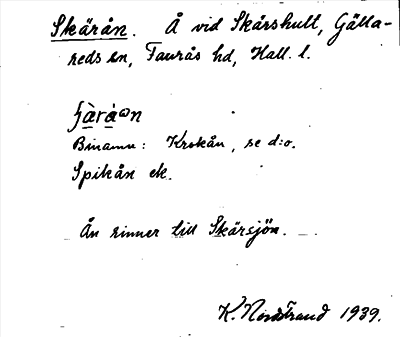 Skärån. Å vid Skärshult, Gälla-
reds sn, Faurås hd, Hall. l.
Binamn: Krokån, se d:o.
Spikån ek.
Ån rinner till Skärsjön.
K. Nordstrand 1939.